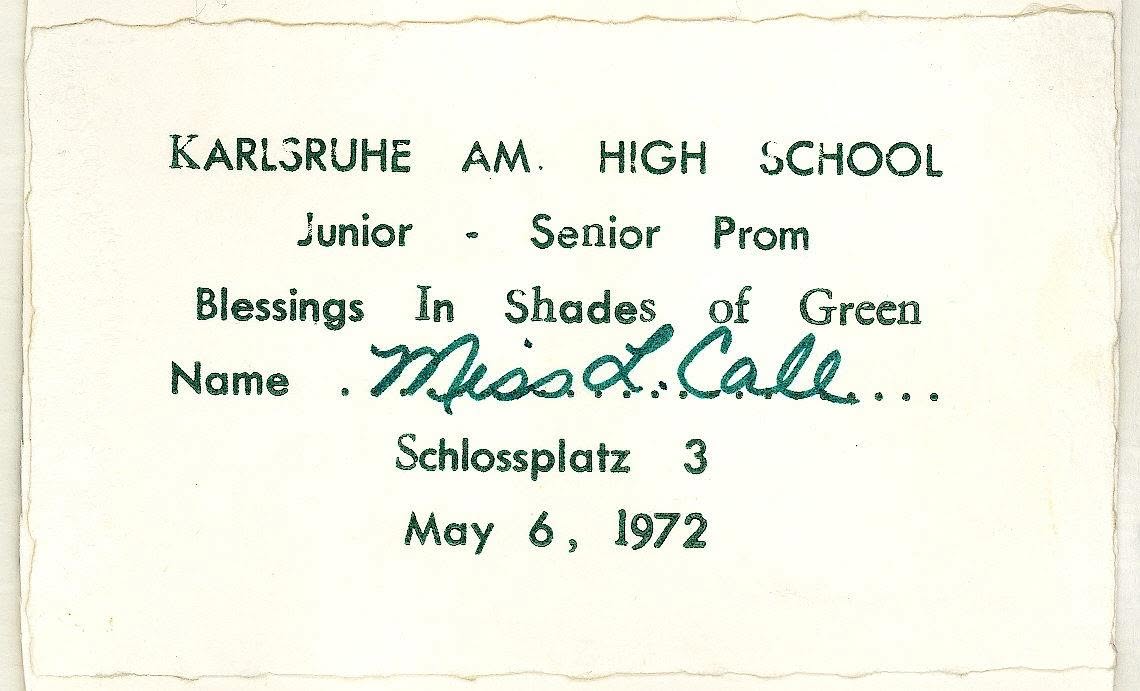 KARLSRUHE AM. HIGH SCHOOL
Junior - Senior Prom
Blessings In Shades of Green
Name . Miss L. Call ....
Schlossplatz 3
May 6, 1972